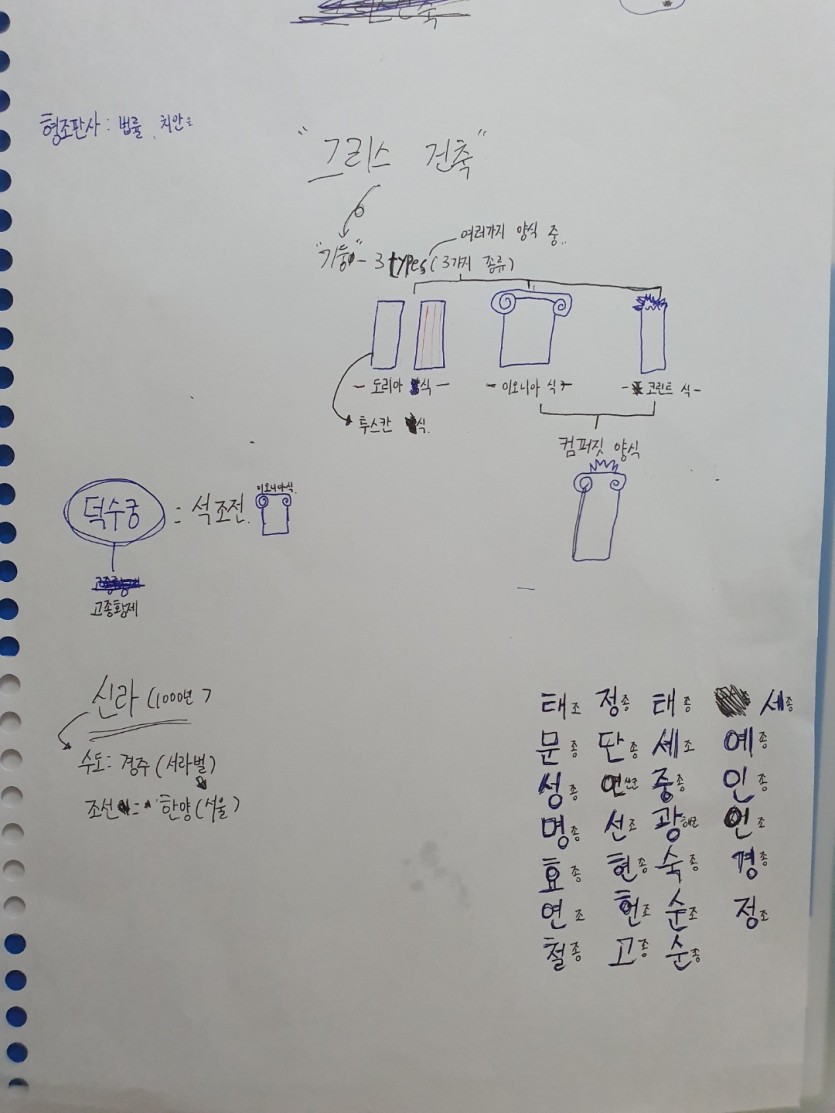 형조판사 : 법률, 치안
"그리스 건축"
여러가지 양식 중..
"기둥" - 3 types (3가지 종류)
- 도리아 식 -
- 이오니아 식 -
- 코린트 식 -
투스칸 식.
컴퍼짓 양식
이오니아식.
덕수궁 = 석조전.
고종황제
신라 (1000년)
수도 : 경주 (서라벌)
조선 = 한양 (서울)
태조 정종 태종 세종
문종 단종 세조 예종
성종 연산군 중종 인종
명종 선조 광해군 인조
효종 현종 숙종 경종
연조 헌조 순조 정조
철종 고종 순종